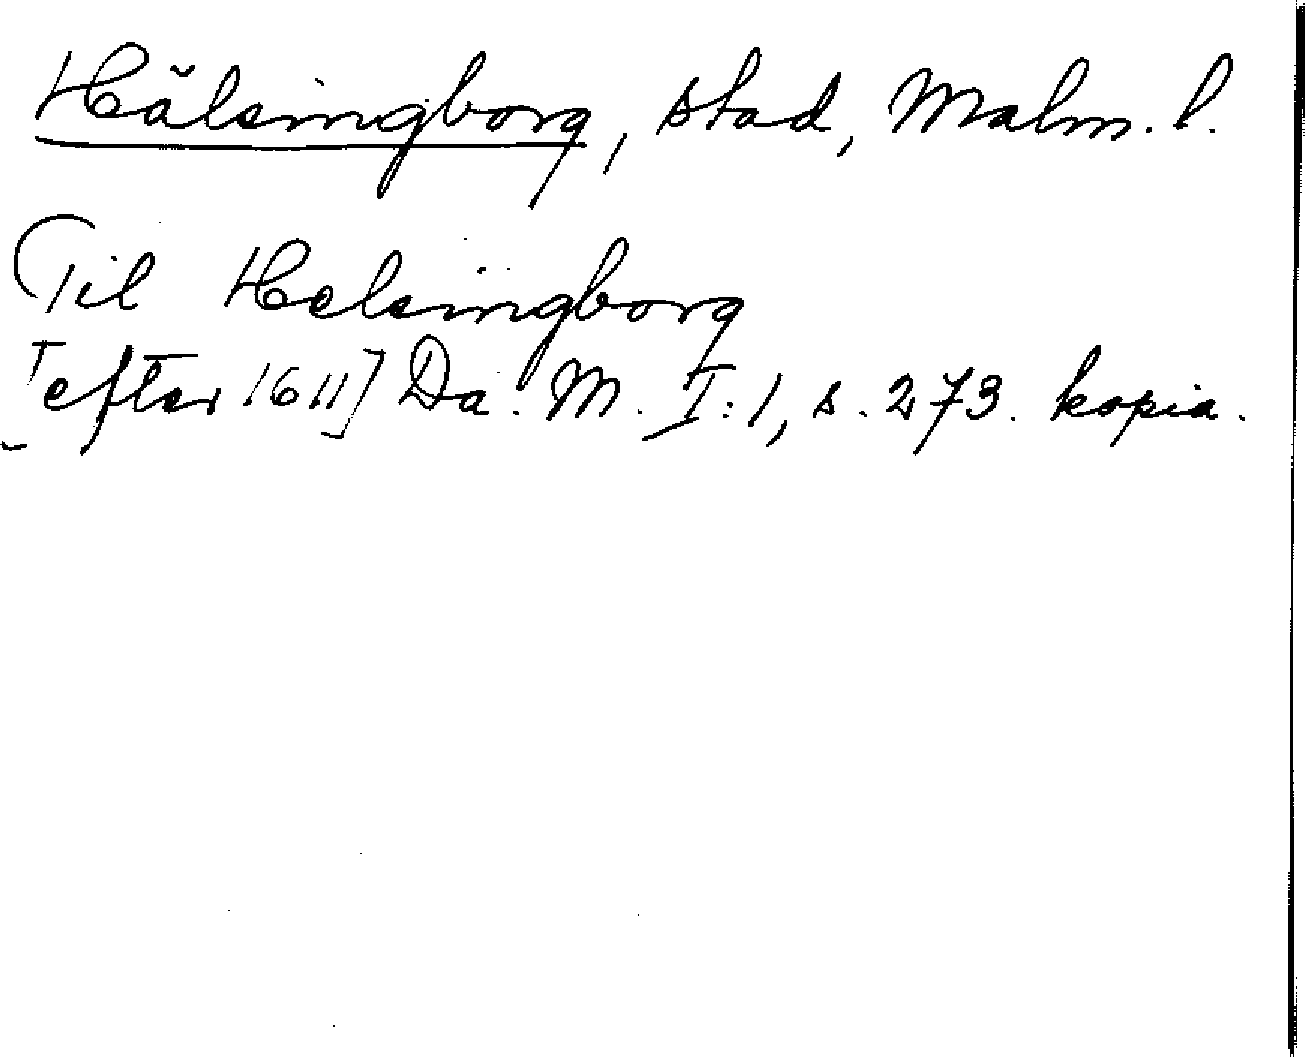 Hälsingborg, stad, Malm. l.
Til Helsingborg
[efter 1611] Da. M. I:1, s. 273. kopia.